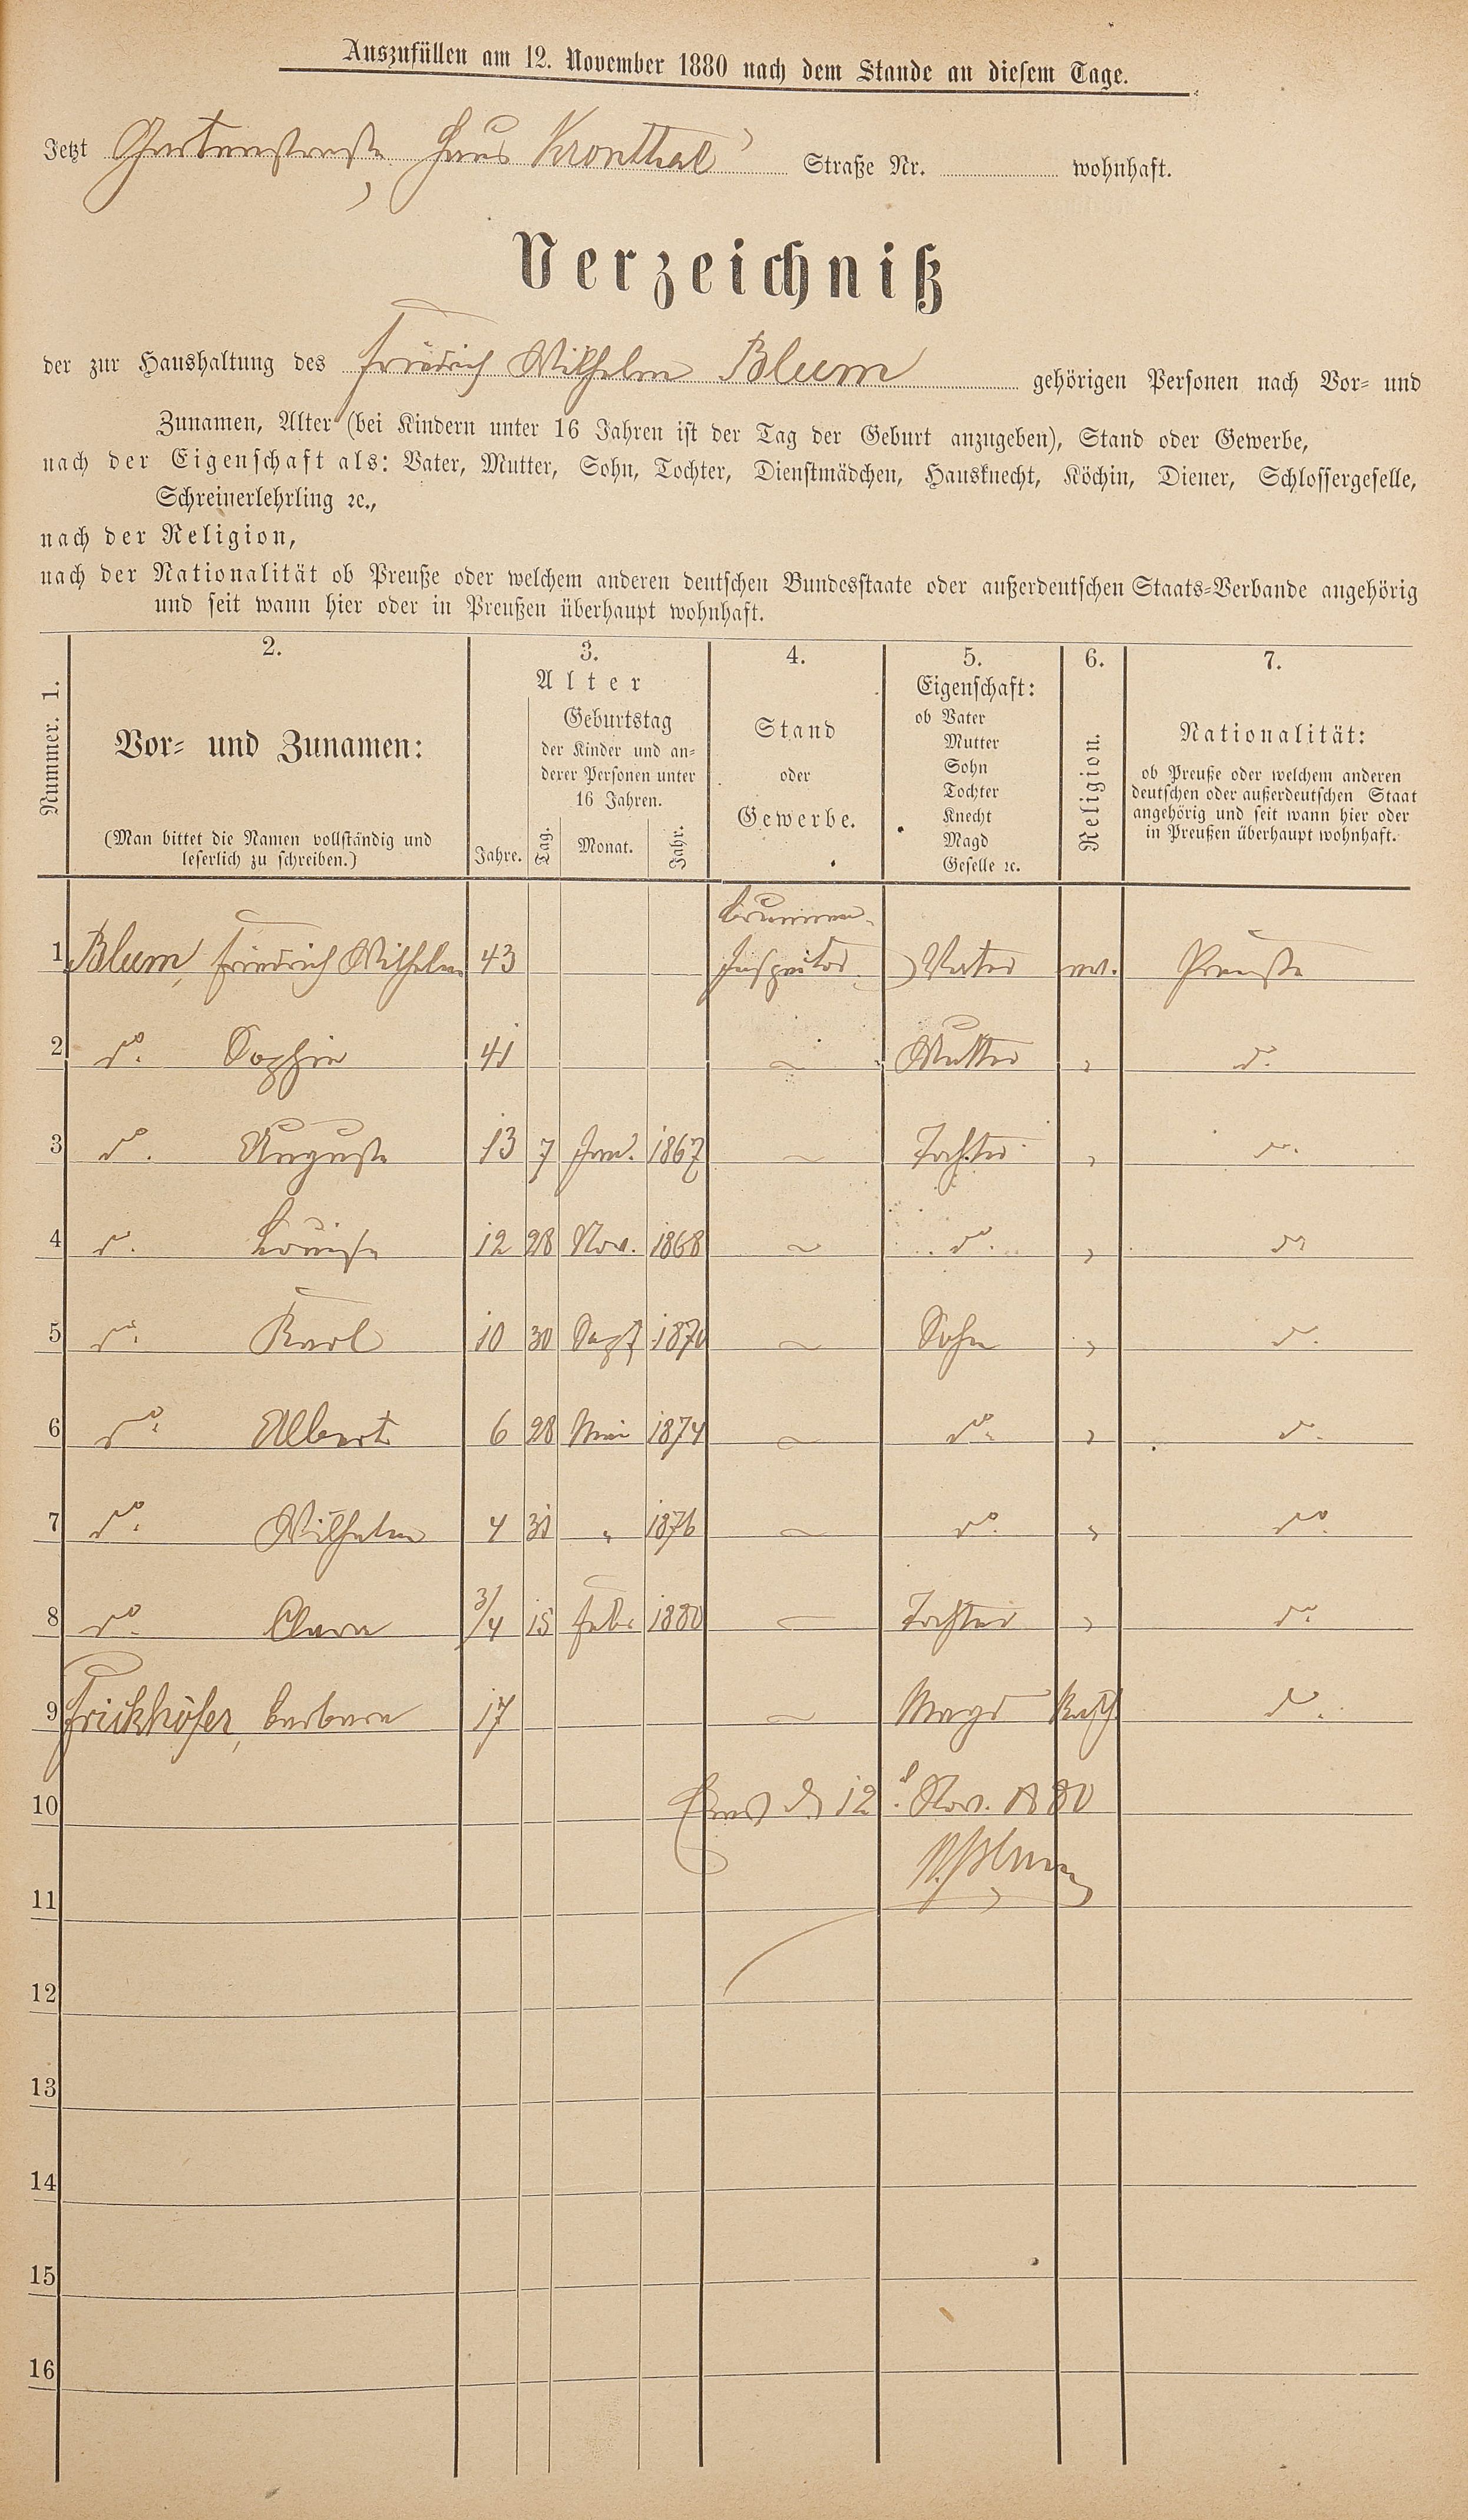 Auszufüllen am 12. November 1880 nach dem Stande an diesem Tage.
Jetzt Gartenstraße, Haus Kronthal Straße Nr. wohnhaft.
Verzeichniß
der zur Haushaltung des Friedrich Wilhelm Blum gehörigen Personen nach Vor- und
Zunamen, Alter (bei Kindern unter 16 Jahren ist der Tag der Geburt anzugeben), Stand oder Gewerbe,
nach der Eigenschaft als: Vater, Mutter, Sohn, Tochter, Dienstmädchen, Hausknecht, Köchin, Diener, Schlossergeselle,
Schreinerlehrling ꝛc.,
nach der Religion,
nach der Nationalität ob Preuße oder welchem anderen deutschen Bundesstaate oder außerdeutschen Staats-Verbande angehörig
und seit wann hier oder in Preußen überhaupt wohnhaft.
Nummer. 1.
2.
Vor- und Zunamen:
(Man bittet die Namen vollständig und
leserlich zu schreiben.)
3.
Alter
Jahre.
Geburtstag
der Kinder und an-
derer Personen unter
16 Jahren.
Tag. Monat. Jahr.
4.
Stand
oder
Gewerbe.
5.
Eigenschaft:
ob Vater
Mutter
Sohn
Tochter
Knecht
Magd
Geselle ꝛc.
6.
Religion.
7.
Nationalität:
ob Preuße oder welchem anderen
deutschen oder außerdeutschen Staat
angehörig und seit wann hier oder
in Preußen überhaupt wohnhaft.
Brunnen-
1 Blum, Friedrich Wilhelm 43 Inspector Vater ev. Preuße
2 do. Sophie 41 ~ Mutter " do.
3 do. Auguste 13 7 Jan. 1867 ~ Tochter " do.
4 do. Louise 12 28 Nov. 1868 ~ do. " do.
5 do. Karl 10 30 Sept 1870 ~ Sohn " do.
6 do. Albert 6 28 Mai 1874 ~ do. " do.
7 do. Wilhelm 4 31 " 1876 ~ do. " do.
8 do. Clara 3/4 15 Febr 1880 — Tochter " do.
9 Frickhöfer, Barbara 17 ~ Magd Kath do.
10 Ems d. 12. Nov. 1880
W. Blum
11
12
13
14
15
16